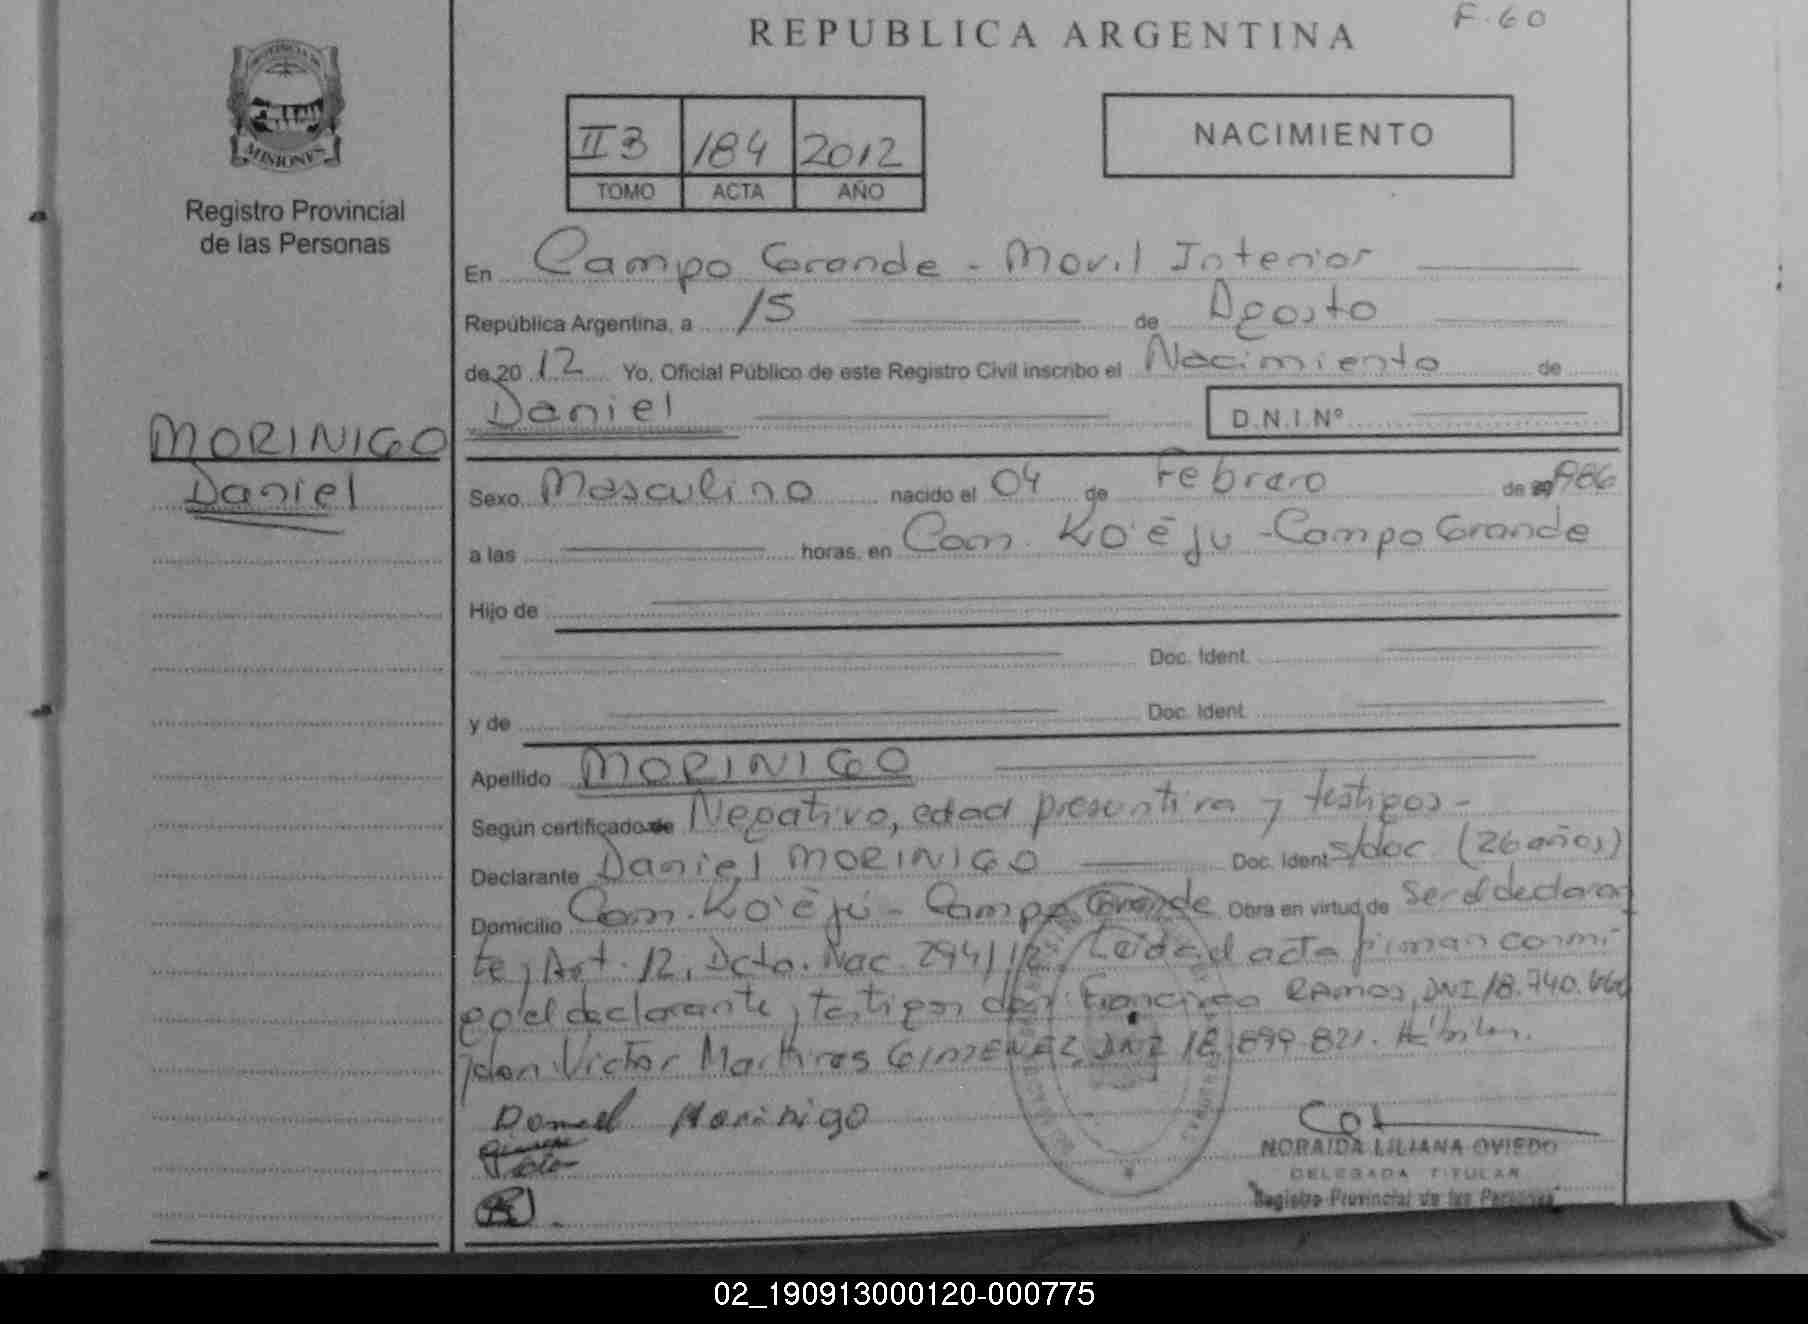 REPUBLICA ARGENTINA
F. 60
PROVINCIA DE
MISIONES
Registro Provincial
de las Personas
II B 184 2012
TOMO ACTA AÑO
NACIMIENTO
En Campo Grande - Movil Interior
República Argentina, a 15 de Agosto
de 20 12 Yo, Oficial Público de este Registro Civil inscribo el Nacimiento de
Daniel D.N.I.Nº
MORINIGO
Daniel
Sexo Masculino nacido el 04 de Febrero de 1986
a las horas, en Com. Ko'ẽju - Campo Grande
Hijo de
Doc. Ident.
y de Doc. Ident.
Apellido MORINIGO
Según certificado de Negativo, edad presuntiva y testigos -
Declarante Daniel MORINIGO Doc. Ident s/doc. (26 años)
Domicilio Com. Ko'ẽjú - Campo Grande Obra en virtud de Ser el declaran
te, Art. 12, Dcto. Nac. 294/12, Leída el acta firman conmi
go el declarante, testigos don: Francisco RAMOS, DNI 18.740.
y don Victor Martires GIMENEZ, DNI 18.899.821.
Daniel Morinigo
NORAIDA LILIANA OVIEDO
DELEGADA TITULAR
Registro Provincial de las Personas
02_190913000120-000775